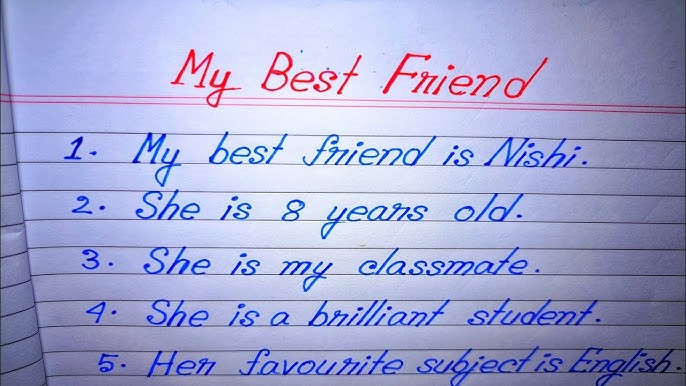 My Best Friend
1. My best friend is Nishi.
2. She is 8 years old.
3. She is my classmate.
4. She is a brilliant student.
5. Her favourite subject is English.